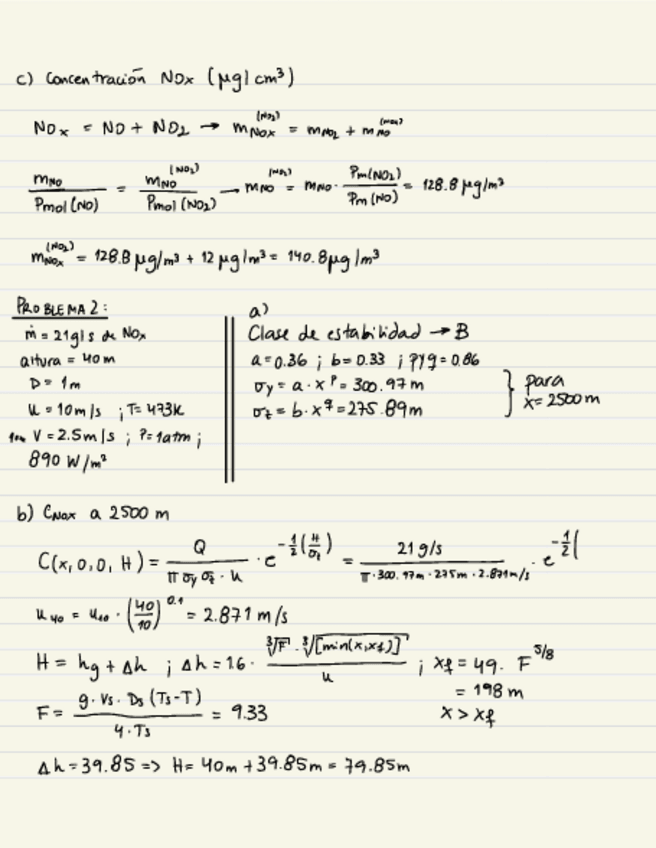 c) Concentración NOx (µg/cm³)
NOx = NO + NO2 → m_NOx^(NO2) = m_NO2 + m_NO^(NO2)
m_NO / Pmol(NO) = m_NO^(NO2) / Pmol(NO2) → m_NO^(NO2) = m_NO · Pm(NO2) / Pm(NO) = 128.8 µg/m³
m_NOx^(NO2) = 128.8 µg/m³ + 12 µg/m³ = 140.8 µg/m³
PROBLEMA 2:
ṁ = 21 g/s de NOx
altura = 40 m
D = 1 m
u = 10 m/s ; T = 473K
10m V = 2.5 m/s ; P = 1 atm ;
890 W/m²
a)
Clase de estabilidad → B
a = 0.36 ; b = 0.33 ; p y q = 0.86
σy = a · x^p = 300.97 m
σz = b · x^q = 275.89 m
} para
x = 2500 m
b) C_NOx a 2500 m
C(x,0,0,H) = Q / (π σy σz · u) · e^(-1/2 (H/σz)) = 21 g/s / (π · 300.97m · 275m · 2.871m/s) · e^(-1/2 (
u40 = u10 · (40/10)^0.1 = 2.871 m/s
H = hg + Δh ; Δh = 1.6 · ∛F · ∛([min(x,xf)]) / u ; xf = 49 · F^5/8
= 198 m
F = g · Vs · Ds (Ts-T) / (4 · Ts) = 9.33
x > xf
Δh = 39.85 => H = 40m + 39.85m = 79.85m